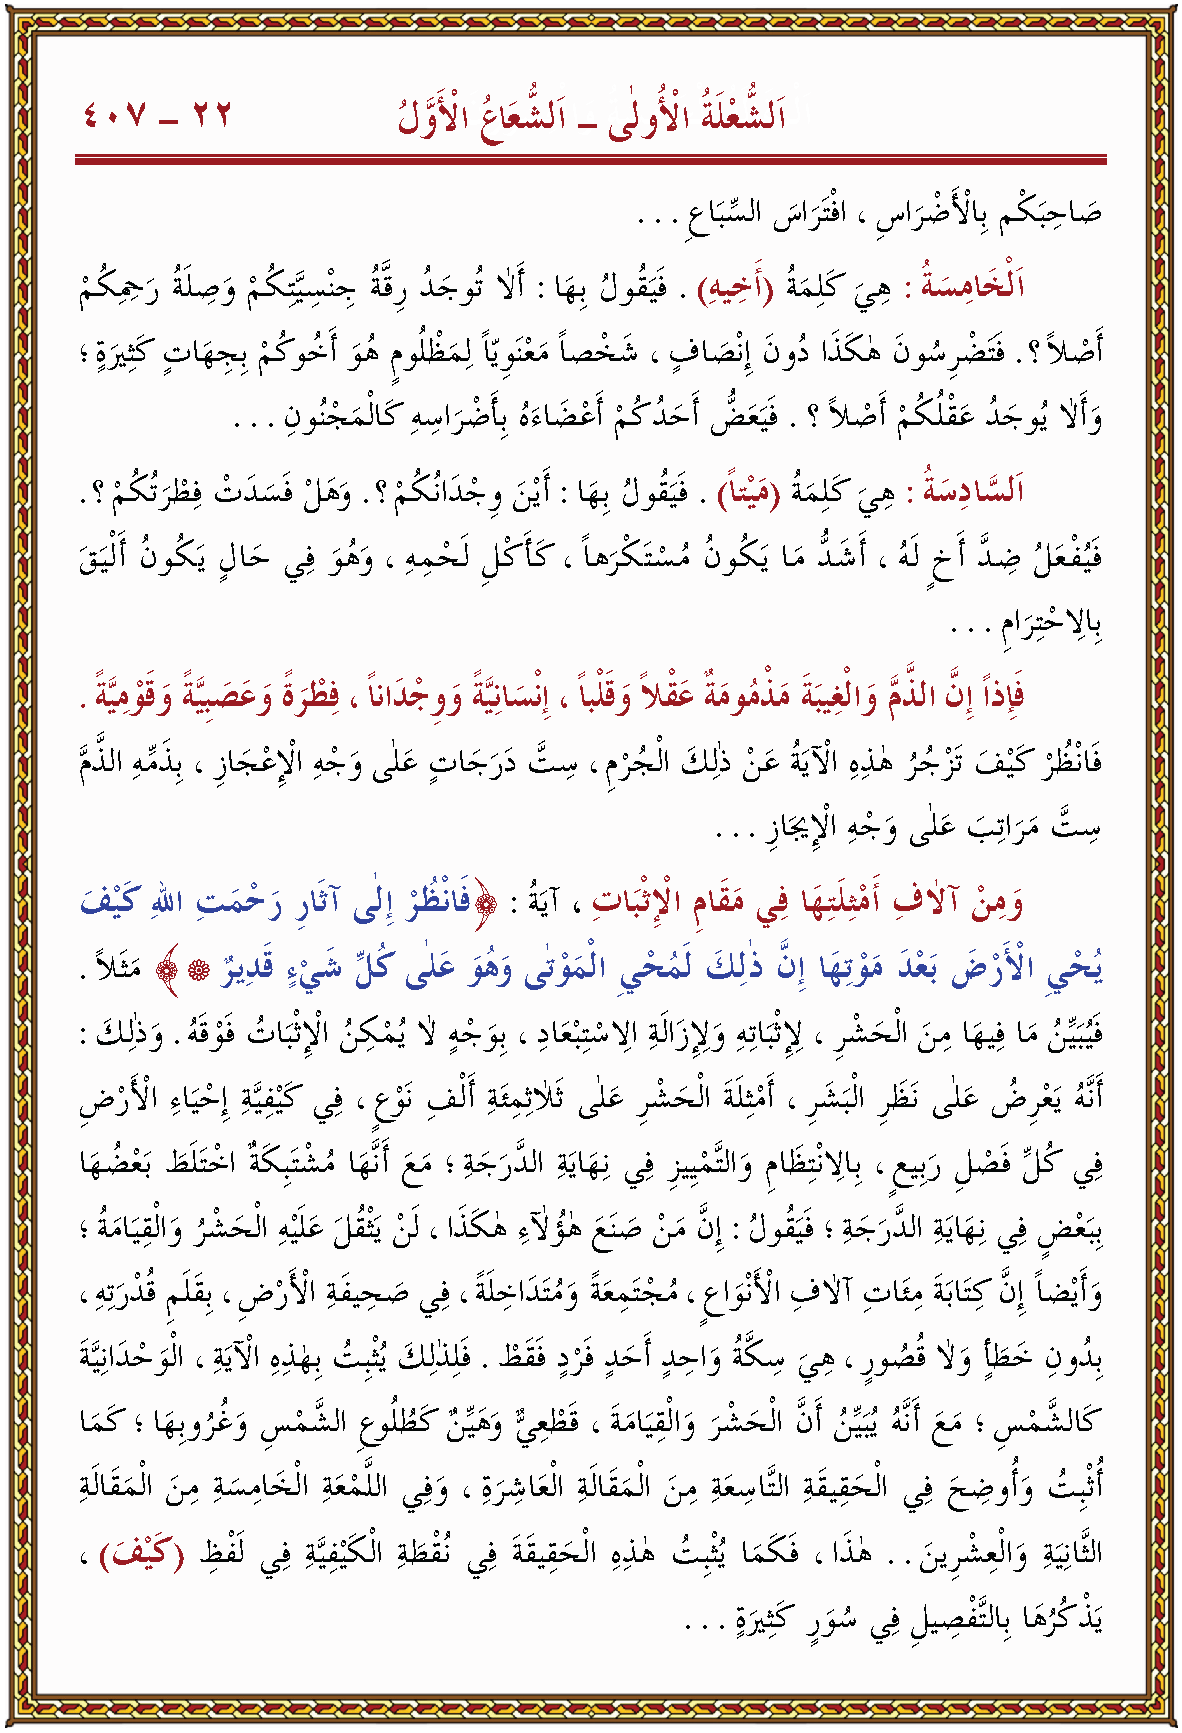 اَلشُّعْلَةُ الْأُولٰى – اَلشُّعَاعُ الْأَوَّلُ ٢٢ – ٤٠٧
صَاحِبَكْم بِالْأَضْرَاسِ ، افْتَرَاسَ السِّبَاعِ . . .
اَلْخَامِسَةُ : هِيَ كَلِمَةُ (أَخِيهِ) . فَيَقُولُ بِهَا : أَلاٰ تُوجَدُ رِقَّةُ جِنْسِيَّتِكُمْ وَصِلَةُ رَحِمِكُمْ
أَصْلاً ؟ . فَتَضْرِسُونَ هٰكَذَا دُونَ إِنْصَافٍ ، شَخْصاً مَعْنَوِيّاً لِمَظْلُومٍ هُوَ أَخُوكُمْ بِجِهَاتٍ كَثِيرَةٍ ؛
وَأَلاٰ يُوجَدُ عَقْلُكُمْ أَصْلاً ؟ . فَيَعَضُّ أَحَدُكُمْ أَعْضَاءَهُ بِأَضْرَاسِهِ كَالْمَجْنُونِ . . .
اَلسَّادِسَةُ : هِيَ كَلِمَةُ (مَيْتاً) . فَيَقُولُ بِهَا : أَيْنَ وِجْدَانُكُمْ ؟ . وَهَلْ فَسَدَتْ فِطْرَتُكُمْ ؟ .
فَيُفْعَلُ ضِدَّ أَخٍ لَهُ ، أَشَدُّ مَا يَكُونُ مُسْتَكْرَهاً ، كَأَكْلِ لَحْمِهِ ، وَهُوَ فِي حَالٍ يَكُونُ أَلْيَقَ
بِالاِحْتِرَامِ . . .
فَإِذاً إِنَّ الذَّمَّ وَالْغِيبَةَ مَذْمُومَةٌ عَقْلاً وَقَلْباً ، إِنْسَانِيَّةً وَوِجْدَاناً ، فِطْرَةً وَعَصَبِيَّةً وَقَوْمِيَّةً .
فَانْظُرْ كَيْفَ تَزْجُرُ هٰذِهِ الْآيَةُ عَنْ ذٰلِكَ الْجُرْمِ ، سِتَّ دَرَجَاتٍ عَلٰى وَجْهِ الْإِعْجَازِ ، بِذَمِّهِ الذَّمَّ
سِتَّ مَرَاتِبَ عَلٰى وَجْهِ الْإِيجَازِ . . .
وَمِنْ آلاٰفِ أَمْثِلَتِهَا فِي مَقَامِ الْإِثْبَاتِ ، آيَةُ : ﴿فَانْظُرْ إِلٰى آثَارِ رَحْمَتِ اللهِ كَيْفَ
يُحْيِي الْأَرْضَ بَعْدَ مَوْتِهَا إِنَّ ذٰلِكَ لَمُحْيِي الْمَوْتٰى وَهُوَ عَلٰى كُلِّ شَيْءٍ قَدِيرٌ ۞﴾ مَثَلاً .
فَيُبَيِّنُ مَا فِيهَا مِنَ الْحَشْرِ ، لِإِثْبَاتِهِ وَلِإِزَالَةِ الاِسْتِبْعَادِ ، بِوَجْهٍ لاٰ يُمْكِنُ الْإِثْبَاتُ فَوْقَهُ . وَذٰلِكَ :
أَنَّهُ يَعْرِضُ عَلٰى نَظَرِ الْبَشَرِ ، أَمْثِلَةَ الْحَشْرِ عَلٰى ثَلاٰثِمِئَةِ أَلْفِ نَوْعٍ ، فِي كَيْفِيَّةِ إِحْيَاءِ الْأَرْضِ
فِي كُلِّ فَصْلِ رَبِيعٍ ، بِالاِنْتِظَامِ وَالتَّمْيِيزِ فِي نِهَايَةِ الدَّرَجَةِ ؛ مَعَ أَنَّهَا مُشْتَبِكَةٌ اخْتَلَطَ بَعْضُهَا
بِبَعْضٍ فِي نِهَايَةِ الدَّرَجَةِ ؛ فَيَقُولُ : إِنَّ مَنْ صَنَعَ هٰؤُلٰآءِ هٰكَذَا ، لَنْ يَثْقُلَ عَلَيْهِ الْحَشْرُ وَالْقِيَامَةُ ؛
وَأَيْضاً إِنَّ كِتَابَةَ مِئَاتِ آلاٰفِ الْأَنْوَاعِ ، مُجْتَمِعَةً وَمُتَدَاخِلَةً ، فِي صَحِيفَةِ الْأَرْضِ ، بِقَلَمِ قُدْرَتِهِ ،
بِدُونِ خَطَأٍ وَلاٰ قُصُورٍ ، هِيَ سِكَّةُ وَاحِدٍ أَحَدٍ فَرْدٍ فَقَطْ . فَلِذٰلِكَ يُثْبِتُ بِهٰذِهِ الْآيَةِ ، الْوَحْدَانِيَّةَ
كَالشَّمْسِ ؛ مَعَ أَنَّهُ يُبَيِّنُ أَنَّ الْحَشْرَ وَالْقِيَامَةَ ، قَطْعِيٌّ وَهَيِّنٌ كَطُلُوعِ الشَّمْسِ وَغُرُوبِهَا ؛ كَمَا
أُثْبِتَ وَأُوضِحَ فِي الْحَقِيقَةِ التَّاسِعَةِ مِنَ الْمَقَالَةِ الْعَاشِرَةِ ، وَفِي اللَّمْعَةِ الْخَامِسَةِ مِنَ الْمَقَالَةِ
الثَّانِيَةِ وَالْعِشْرِينَ . . هٰذَا ، فَكَمَا يُثْبِتُ هٰذِهِ الْحَقِيقَةَ فِي نُقْطَةِ الْكَيْفِيَّةِ فِي لَفْظِ (كَيْفَ) ،
يَذْكُرُهَا بِالتَّفْصِيلِ فِي سُوَرٍ كَثِيرَةٍ . . .